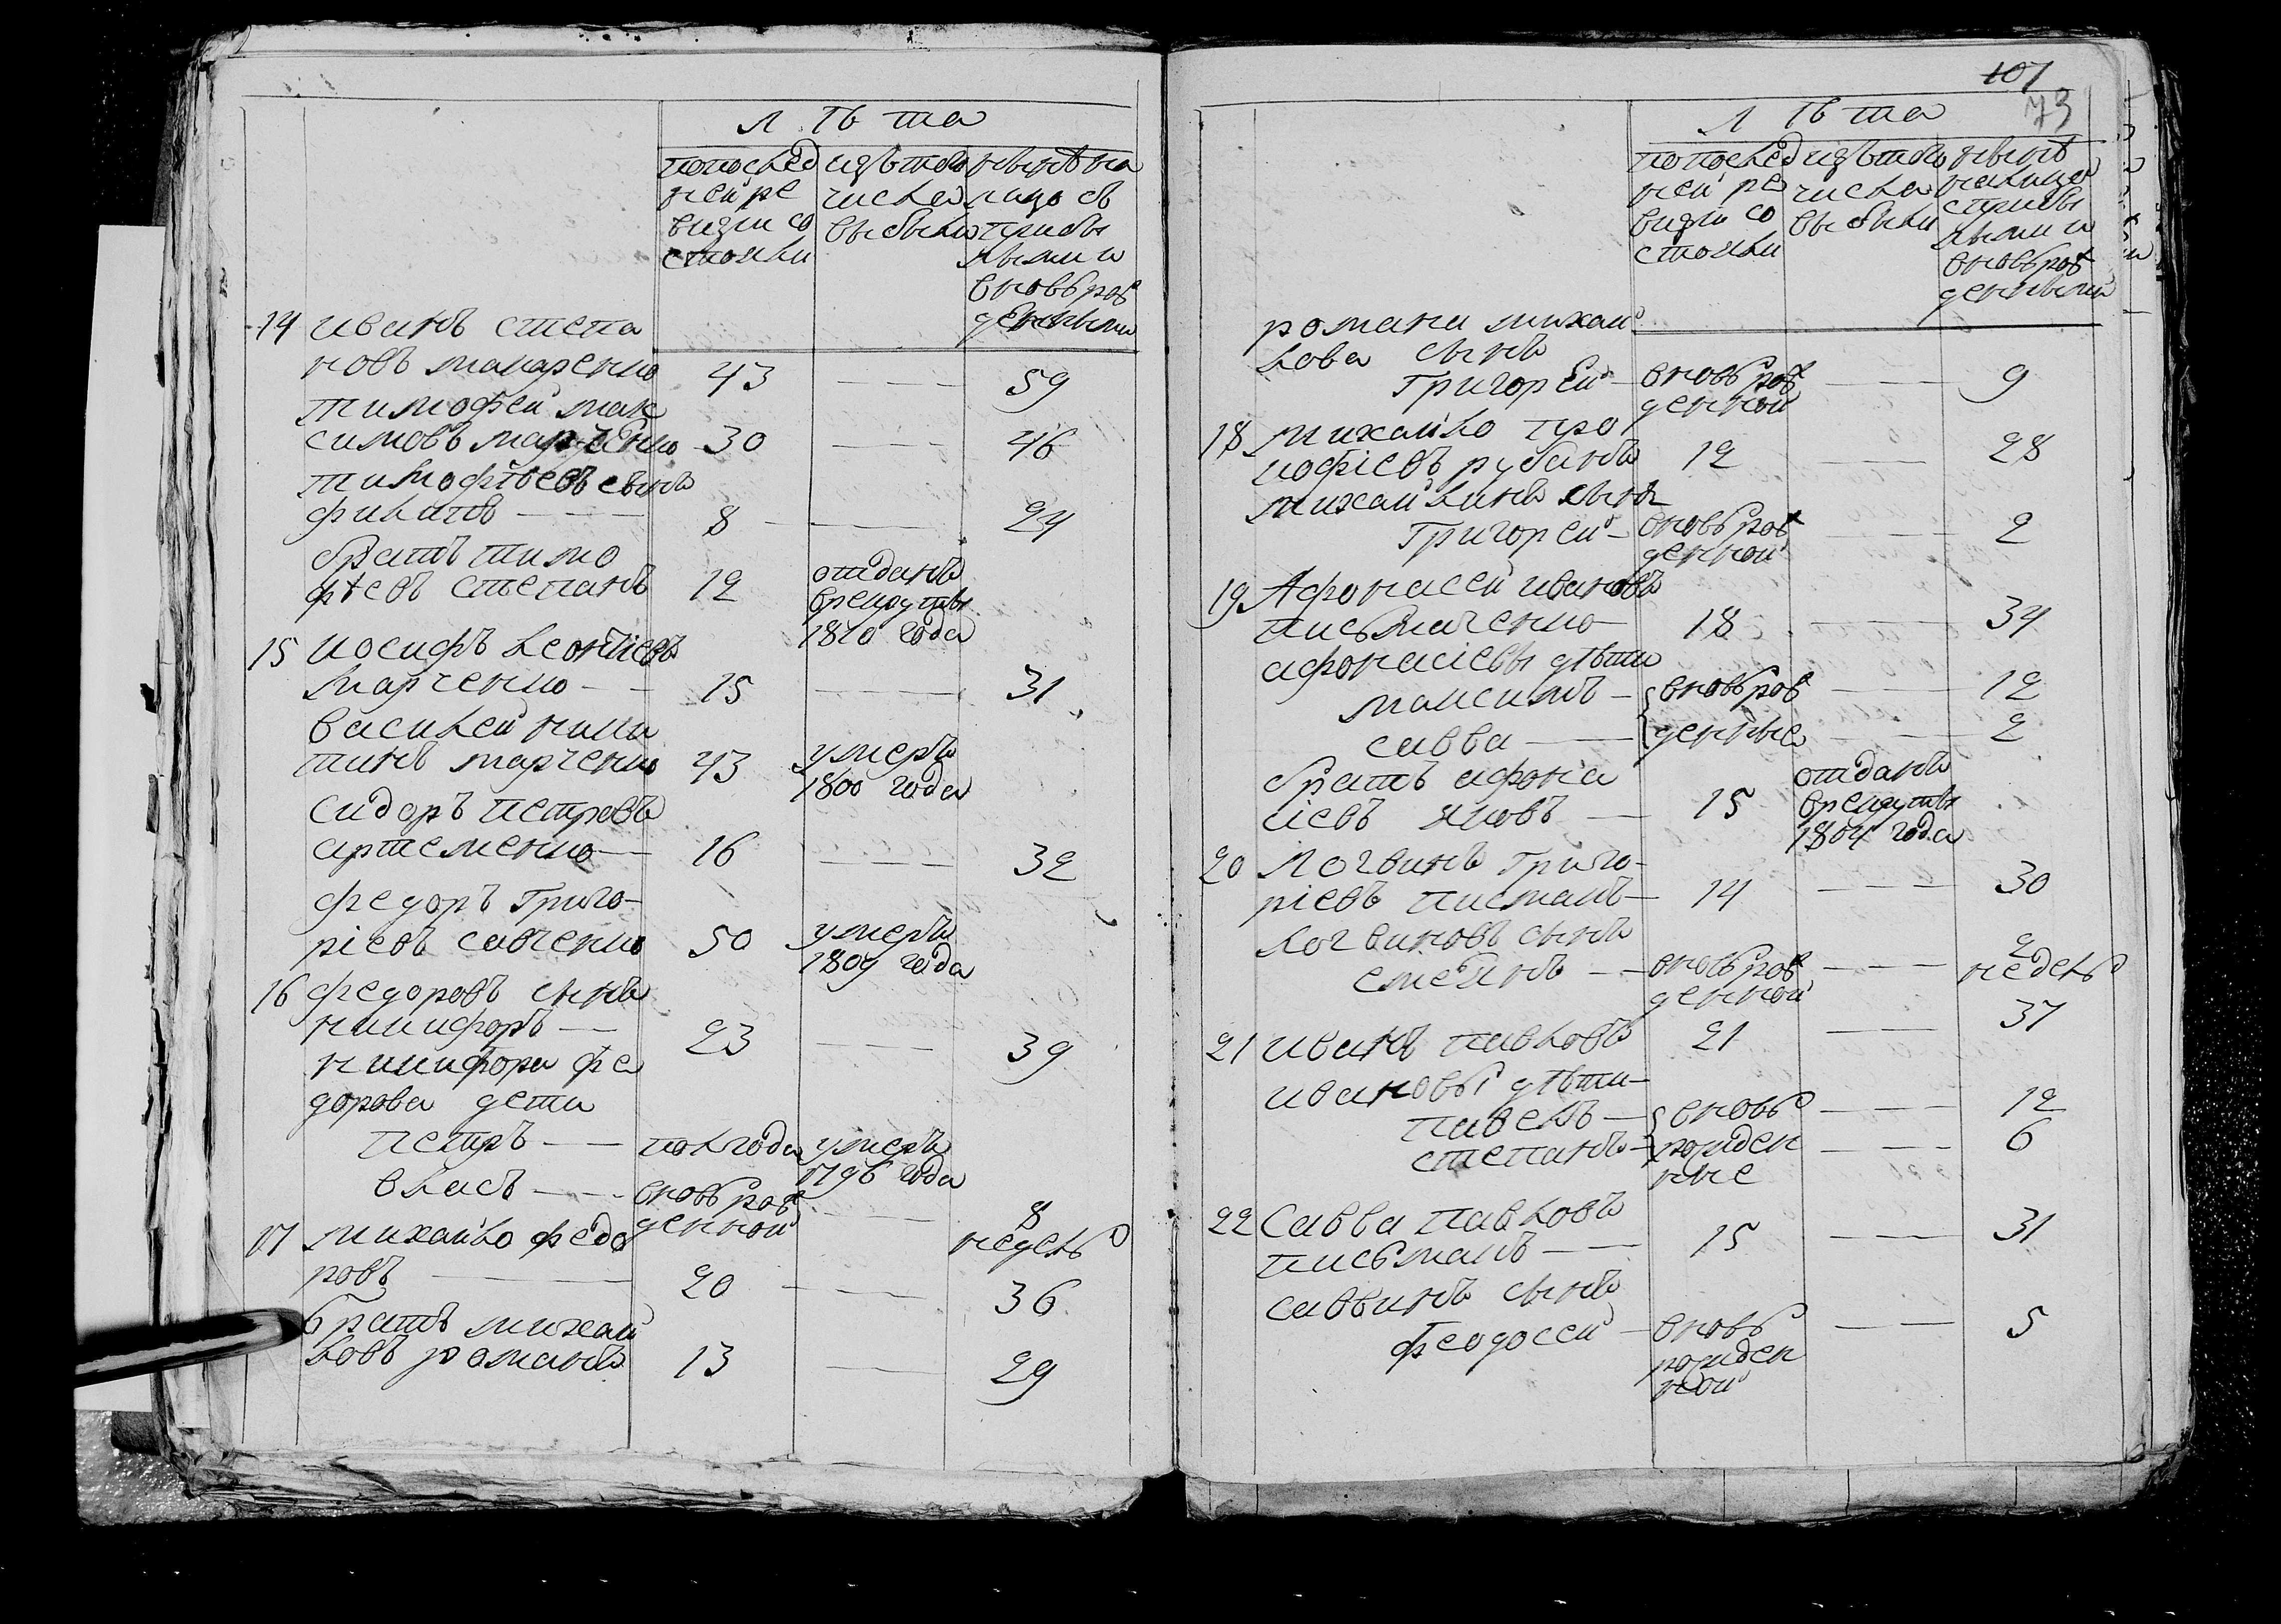 Лѣта
попослед изътого нынѣ на
ней ре числа лицо съ
визии со выбыло прибы
стояли лыми и
вновь рож
денными
14 иванъ степа
новъ макаренко 43 — — — 59
тимофей мак
симовъ марченко 30 — — — 46
тимофѣевъ сынъ
филипъ — — 8 — — — 24
братъ тимо
фѣевъ степанъ 12 отданъ
врекруты
1810 года
15 иосифъ леонтіевъ
марченко — — 15 — — — 31
василей ники
тинъ марченко 43 умеръ
1800 года
сидоръ петровъ
артеменко — 16 — — — 32
федоръ григо-
ріевъ савченко 50 умеръ
1809 года
16 федоровъ сынъ
никифоръ — 23 — — — 39
никифора фе
дорова дети
петръ — — полгода умеръ
1796 года
власъ — — вновь рож — — 8
денной недель
17 михайло федо
ровъ — — 20 — — — 36
братъ михай
ловъ романъ 13 — — — 29
107
73
Лѣта
попослед изътого нынѣ
ней ре числа налицо
визии со выбыли с прибы
стояли лыми и
вновь рож
денными
романа михай
лова сынъ
Григорей — вновь рож — — — 9
денной
18 михайло про
кофіевъ рубанъ 12 — — — 28
михайлинъ сынъ
Григорей — вновь рож — — — 2
денной
19 Афонасей ивановъ
письмаченко — 18 — — — 34
афонасіевы дѣти
максимъ — вновь рож — — — 12
савва — денные — — — 2
братъ афона
сіевъ яковъ — 15 отданъ
врекруты
1804 года
20 Логвинъ Григо-
ріевъ писмакъ — 14 — — — 30
логвиновъ сынъ 2
семенъ — вновь рож — — — недель
денной
21 иванъ павловъ 21 — — — 37
ивановы дѣти —
павелъ — вновь — — — 12
степанъ — рожден — — — 6
ные
22 Савва павловъ
письмакъ — — 15 — — — 31
саввинъ сынъ
феодосей — вновь — — — 5
рожден
ной